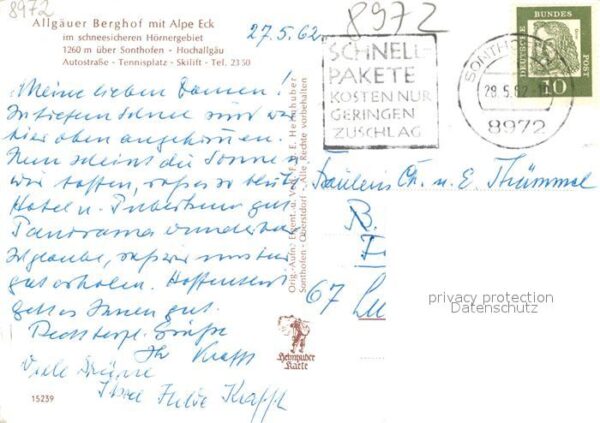 8972
Allgäuer Berghof mit Alpe Eck
im schneesicheren Hörnergebiet
1260 m über Sonthofen - Hochallgäu
Autostraße - Tennisplatz - Skilift - Tel. 23 50
27.5.62.
8972
SCHNELL-
PAKETE
KOSTEN NUR
GERINGEN
ZUSCHLAG
SONTHOFEN
29.5.62
8972
DEUTSCHE BUNDESPOST
10
Meine lieben Damen!
Im tiefen Schnee sind wir
hier oben angekommen.
Nun scheint die Sonne u.
wir hoffen, daß es so bleibt
Hotel u. gut
Panorama wunderbar
Ich glaube, daß wir uns hier
gut erholen. Hoffentlich
geht es Ihnen gut.
Recht herzl. Grüße
Ihr Krafft
Viele Grüße
Ihre Hilde Krafft
Orig.-Aufn. Eigent. u. Verl. F. u. E. Heimhuber
Sonthofen - Oberstdorf - Alle Rechte vorbehalten
Fräuleins Ch. u. E. Thümmel
67 Lu
privacy protection
Datenschutz
Heimhuber
Karte
15239